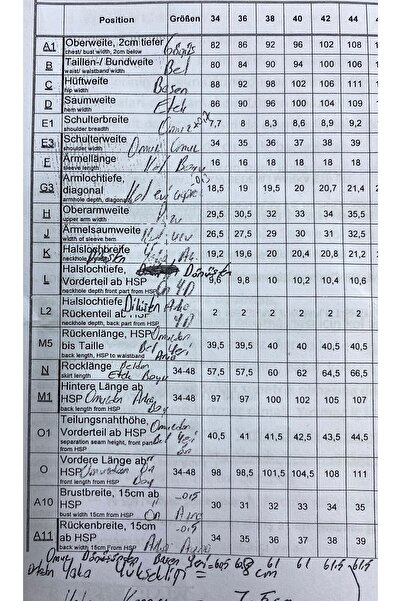 Position Größen 34 36 38 40 42 44
A1 Oberweite, 2cm tiefer 82 86 92 96 102 108
chest/ bust width, 2cm below
B Taillen-/ Bundweite Bel 80 84 90 94 100 106
waist/ waistband width
C Hüftweite Basen 88 92 98 102 106 111
hip width
D Saumweite Etek 86 90 96 100 104 109
hem width
E1 Schulterbreite Omuz 7,7 8 8,3 8,6 8,9 9,2
shoulder breadth
E3 Schulterweite Omuz Omuz 34 35 36 37 38 39
shoulder width
F Ärmellänge Kol Boyu 16 16 18 18 18 18
sleeve length
G3 Armlochtiefe, diagonal Kol evi 18,5 19 19,5 20 20,7 21,4
armhole depth, diagonal
H Oberarmweite 29,5 30,5 32 33 34 35,5
upper arm width
J Ärmelsaumweite 26,5 27,5 29 30 31 32,5
width of sleeve hem
K Halslochbreite 19,2 19,6 20 20,4 20,8 21,2
L Halslochtiefe, Vorderteil ab HSP Dönüşten Ön 9,6 9,8 10 10,2 10,4 10,6
neckhole depth front part from HSP
L2 Halslochtiefe Rückenteil ab HSP Arka 2 2 2 2 2 2
neckhole depth, back part from HSP
M5 Rückenlänge, HSP bis Taille Omuzdan Bel Yeri Arka 39,5 39,5 40 40 40,5 40,5
back length, HSP to waistband
N Rocklänge Belden Etek Boyu 34-48 57,5 57,5 60 62 64,5 66,5
skirt length
M1 Hintere Länge ab HSP Omuzdan Arka Boy 34-48 97 97 100 102 105 107
back length from HSP
O1 Teilungsnahthöhe, Vorderteil ab HSP Omuzdan Bel Yeri Ön 40,5 41 41,5 42,5 43,5 44,5
separation seam height, front part from HSP
O Vordere Länge ab HSP Omuzdan Ön Boy 34-48 98 98,5 101,5 104,5 108 111
front length from HSP
A10 Brustbreite, 15cm ab HSP -0,5 Ön 30 31 32 33 34 35
bust width 15cm from HSP
A11 Rückenbreite, 15cm ab HSP -0,5 Arka 34 35 36 37 38 39
back width 15cm from HSP
Omuz Dönüşünden Basen Yeri = 60,5 61 61 61,5 61,5
Yaka Yüksekliği = 8 cm